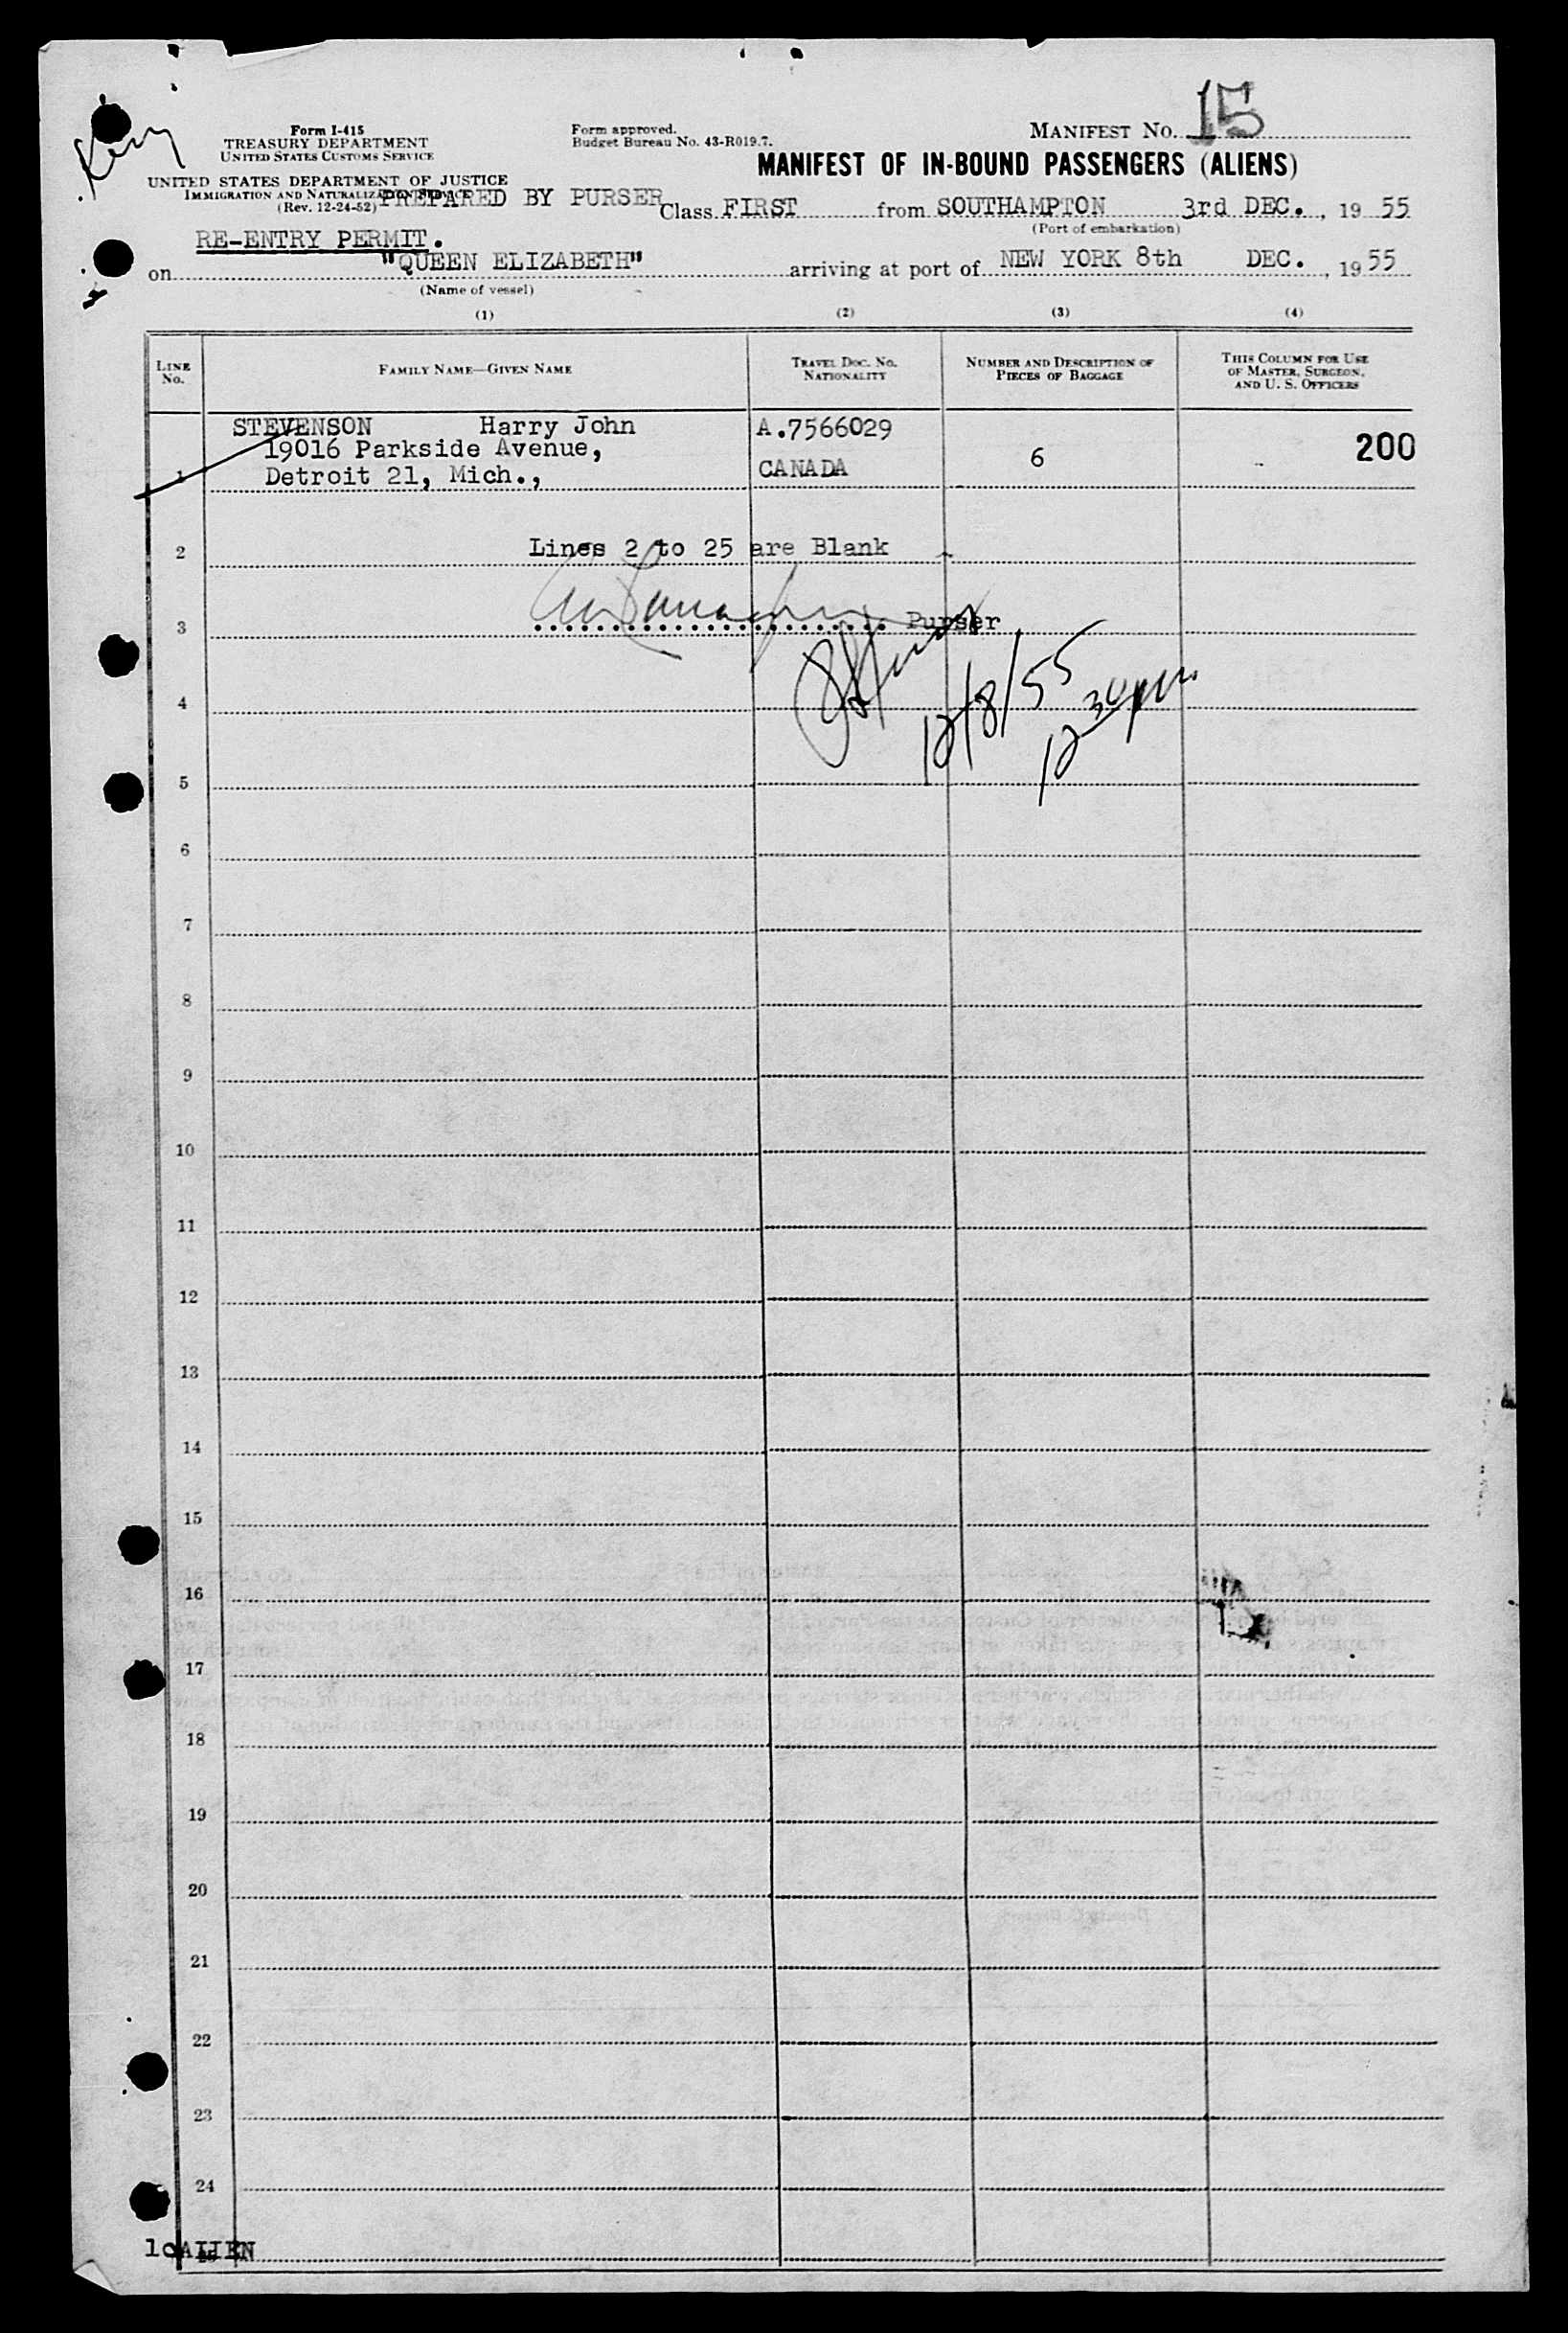 15
MANIFEST No.
Form I-415
TREASURY DEPARTMENT
UNITED STATES CUSTOMS SERVICE
Form approved.
Budget Bureau No. 43-R019.7.
MANIFEST OF IN-BOUND PASSENGERS (ALIENS)
UNITED STATES DEPARTMENT OF JUSTICE
IMMIGRATION AND NATURALIZATION SERVICE
(Rev. 12-24-52)
PREPARED BY PURSER
Class FIRST from SOUTHAMPTON 3rd DEC., 19 55
(Port of embarkation)
RE-ENTRY PERMIT.
on "QUEEN ELIZABETH" arriving at port of NEW YORK 8th DEC., 19 55
(Name of vessel)
(1) (2) (3) (4)
LINE No. FAMILY NAME—GIVEN NAME TRAVEL DOC. No. NATIONALITY NUMBER AND DESCRIPTION OF PIECES OF BAGGAGE THIS COLUMN FOR USE OF MASTER, SURGEON, AND U. S. OFFICERS
STEVENSON Harry John A.7566029
19016 Parkside Avenue, 6 200
1 Detroit 21, Mich., CANADA
2 Lines 2 to 25 are Blank
3 Purser
12/8/55
12 30 pm
4
5
6
7
8
9
10
11
12
13
14
15
16
17
18
19
20
21
22
23
24
25